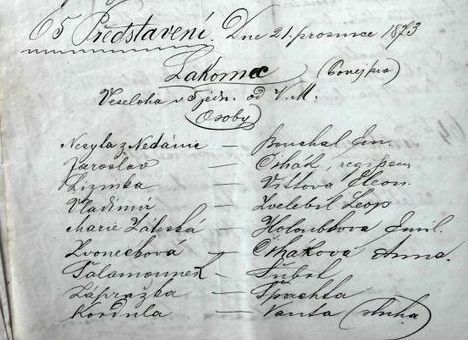 65 Představení. Dne 21. prosince 1873
Lakomec (Ponejprv)
Veselohra v 5 jedn. od V. M.
Osoby
Nesyta z Nedánic — Bouchal Em.
Jaroslav — Čihák, regisseur
Lizinka — Vittová Eleon.
Vladimír — Zvelebil Leop
Marie Záleská — Holoubkova Emil.
Zvonečková — Čihákova Anna.
Šubrt
Zápražka — Špachta
Kordula — Vaňta